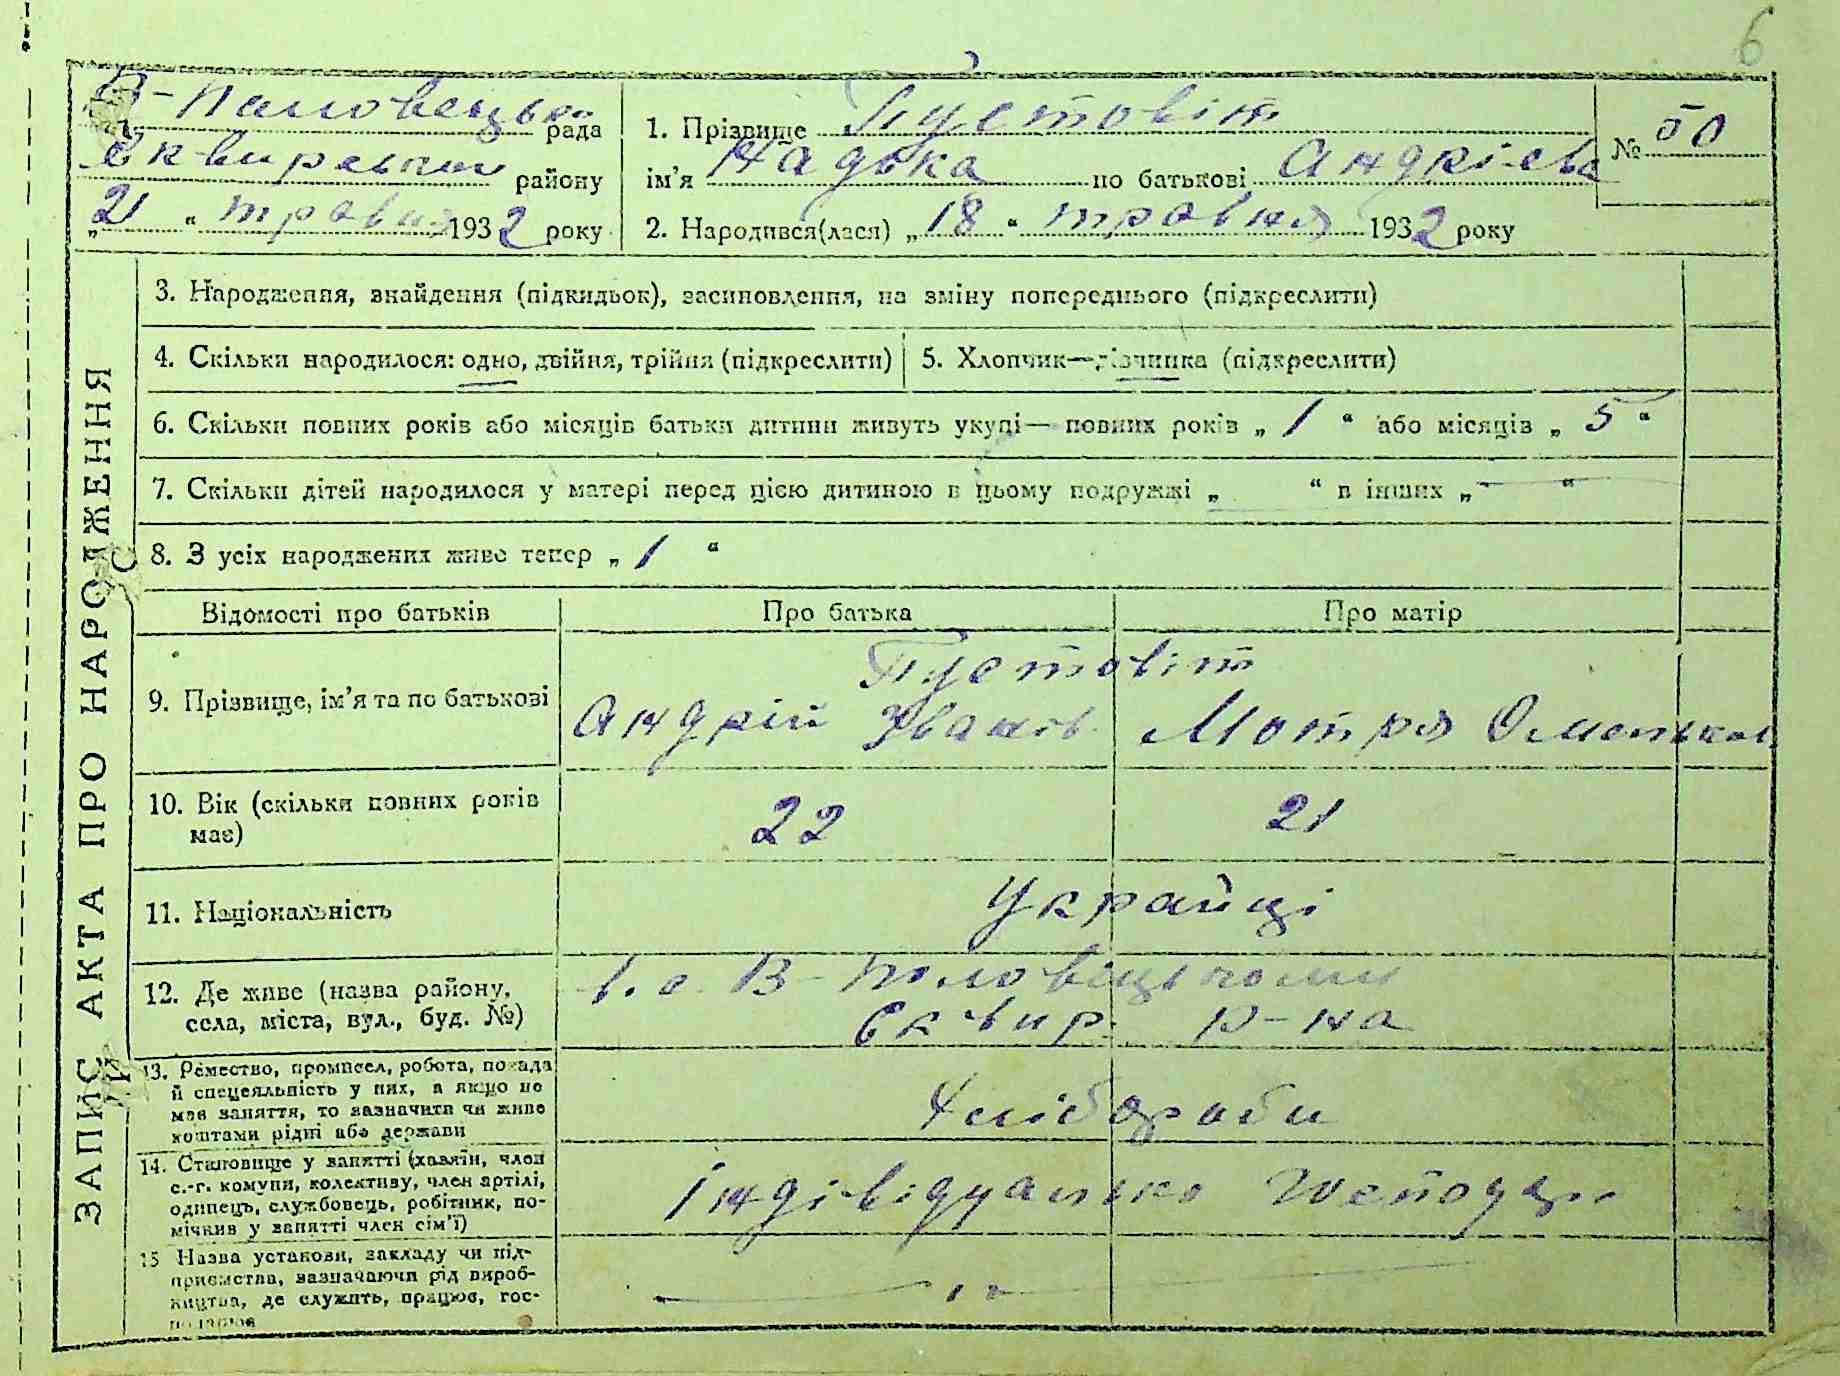 6
В-Половецька рада
Сквирської району
„21“ травня 1932 року
1. Прізвище Пустовіт
ім’я Надька по батькові Андрієва
№ 50
2. Народився(лася) „18“ травня 1932 року
ЗАПИС АКТА ПРО НАРОДЖЕННЯ
3. Народження, знайдення (підкидьок), засиновлення, на зміну попереднього (підкреслити)
4. Скільки народилося: одно, двійня, трійня (підкреслити)
5. Хлопчик—дівчинка (підкреслити)
6. Скільки повних років або місяців батьки дитини живуть укупі— повних років „1“ або місяців „5“
7. Скільки дітей народилося у матері перед цією дитиною в цьому подружжі „ “ в інших „—“
8. З усіх народжених живе тепер „1“
Відомості про батьків
Про батька
Про матір
9. Прізвище, ім’я та по батькові
Пустовіт
Андрій Іванів
Мотря
10. Вік (скільки повних років
має)
22
21
11. Національність
Українці
12. Де живе (назва району,
села, міста, вул., буд. №)
в. с. В-Половецькому
Сквир. р-на
13. Ремество, промисел, робота, посада
й спецеяльність у них, а якщо не
має заняття, то зазначити чи живе
коштами рідні або держави
Хлібороби
14. Становище у занятті (хазяїн, член
с.-г. комуни, колективу, член артілі,
одинець, службовець, робітник, по-
мічник у занятті член сім’ї)
Індівідуально
15 Назва установи, закладу чи під-
приємства, зазначаючи рід вироб-
ництва, де служить, працює, гос-
подарює